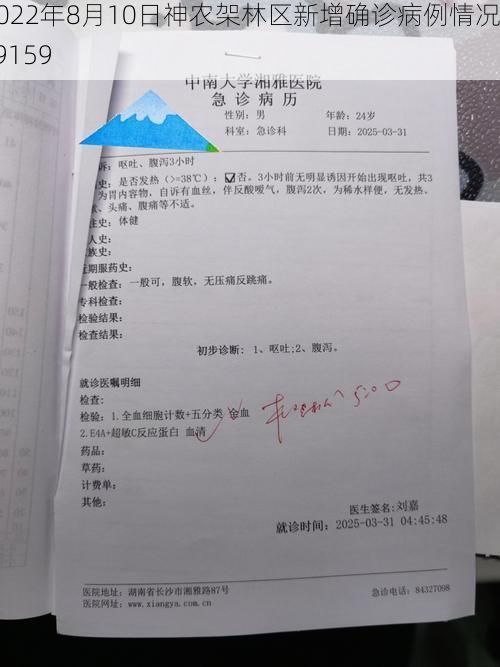 022年8月10日神农架林区新增确诊病例情况
9159
中南大学湘雅医院
急诊病历
性别：男 年龄：24岁
科室：急诊科 日期：2025-03-31
诉：呕吐、腹泻3小时
史：是否发热（>=38℃）：☑否。3小时前无明显诱因开始出现呕吐，共3
为胃内容物，自诉有血丝，伴反酸嗳气，腹泻2次，为稀水样便，无发热、
、头痛、腹痛等不适。
往史：体健
人史：
族史：
近期服药史：
一般检查：一般可，腹软，无压痛反跳痛。
专科检查：
检验结果：
检查结果：
初步诊断：1、呕吐;2、腹泻。
就诊医嘱明细
检查：
检验：1.全血细胞计数+五分类 全血
2.E4A+超敏C反应蛋白 血清
药品：
草药：
计费单：
其他：
医生签名:刘嘉
就诊时间：2025-03-31 04:45:48
医院地址：湖南省长沙市湘雅路87号 急诊电话：84327098
医院网址：www.xiangya.com.cn